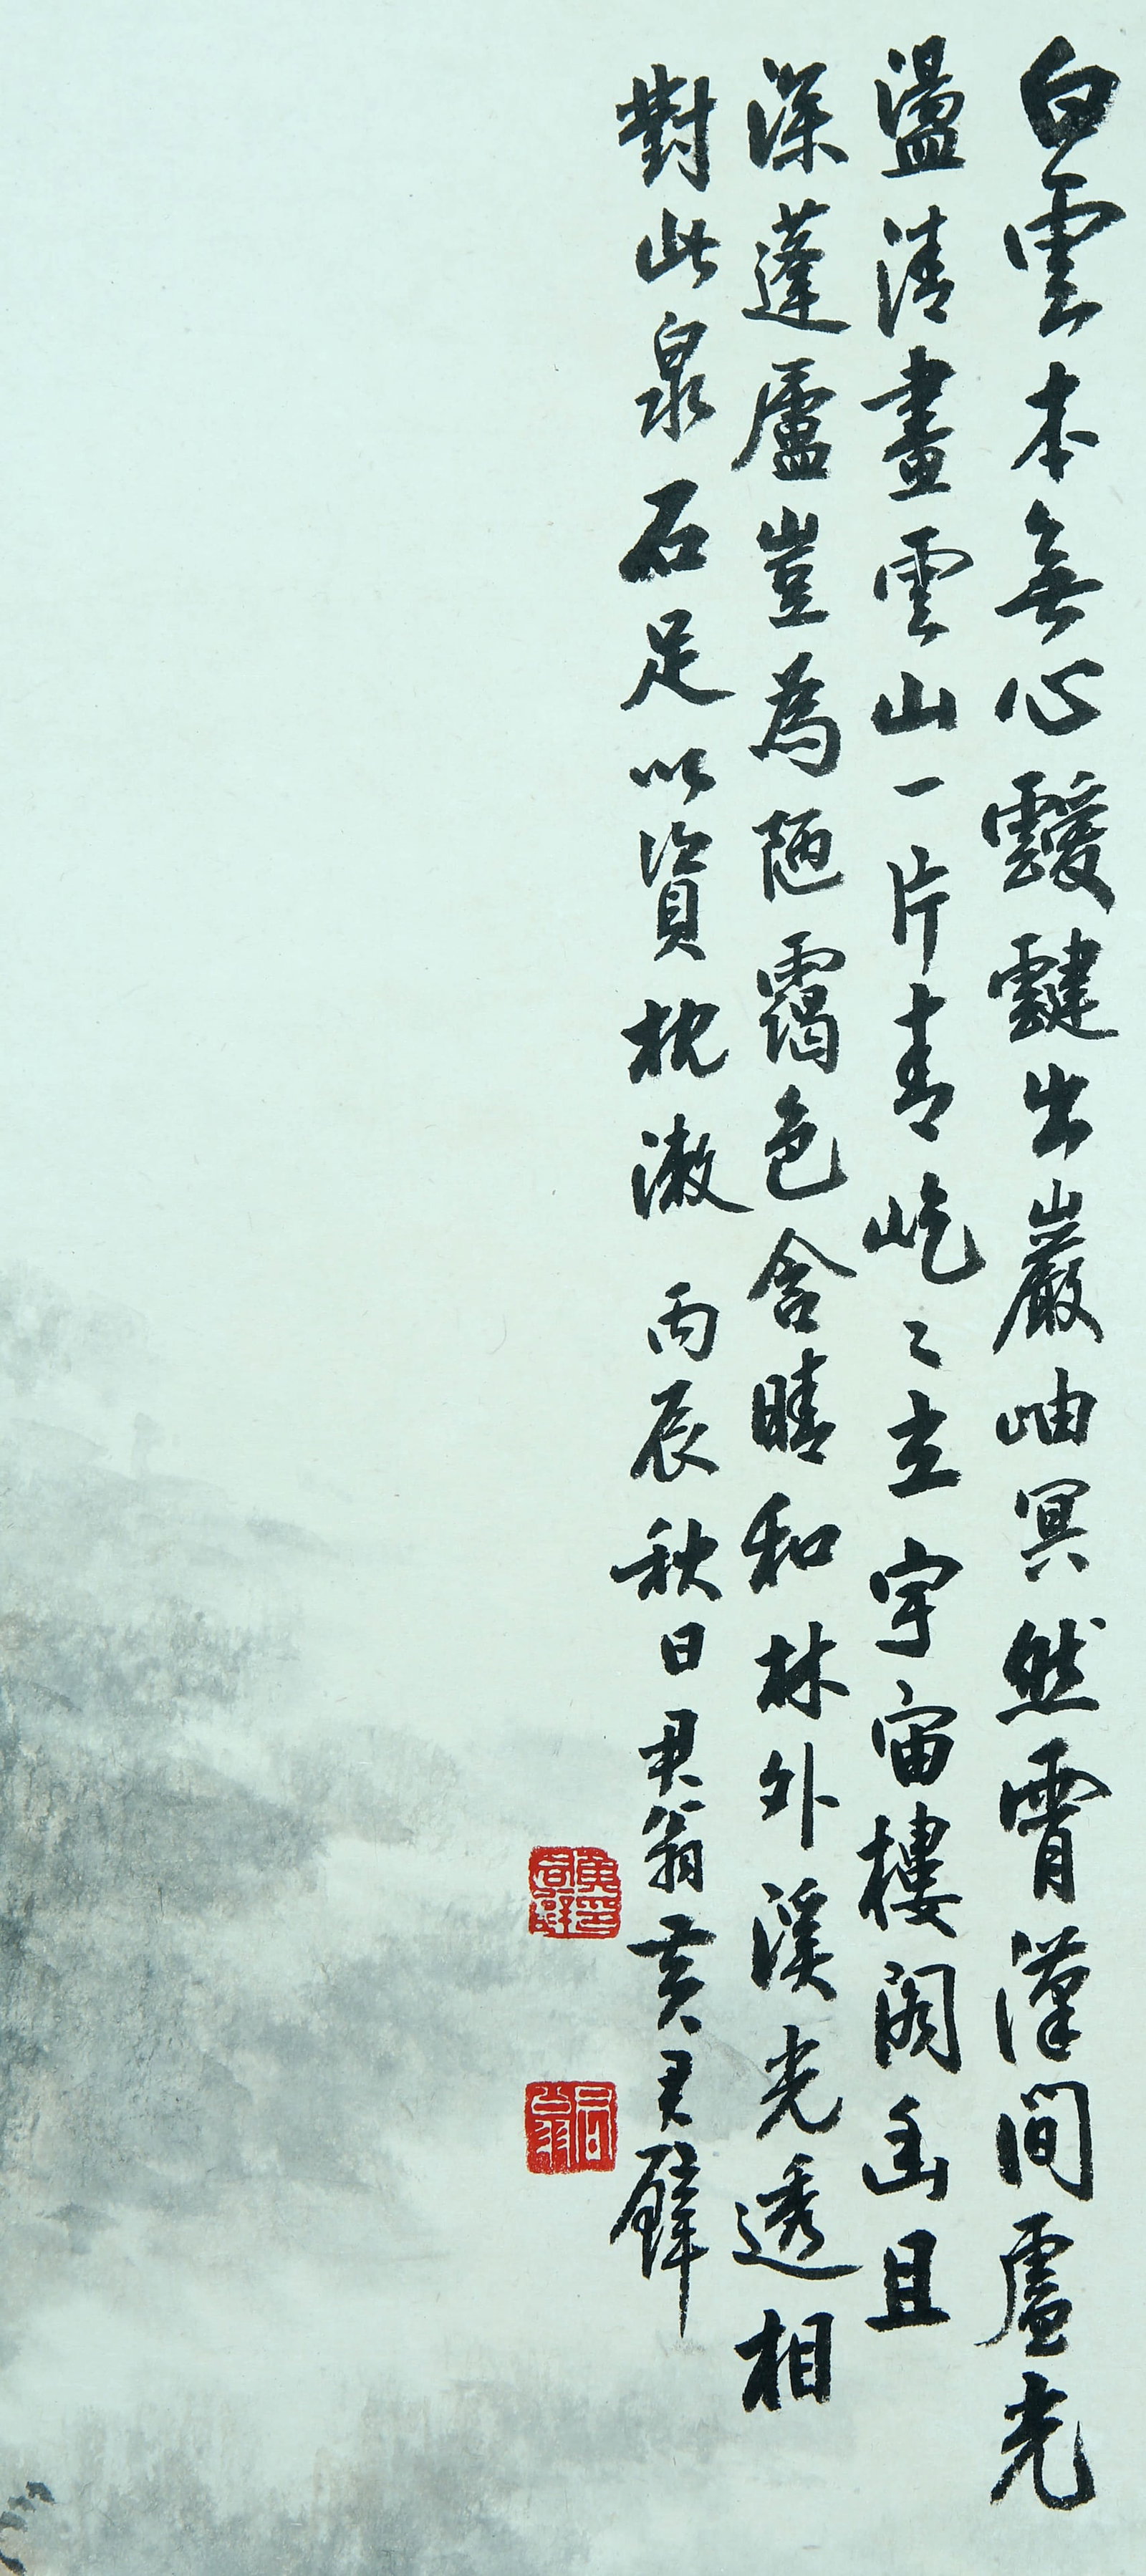 白雲本無心靉靆出巖岫冥然霄漢間虛光
盪清晝雲山一片青屹〻立宇宙樓閣幽且
深蓬廬豈為陋靄色含晴和林外溪光透相
對此泉石足以資枕漱 丙辰秋日君翁黃君璧
黃君璧印
君翁